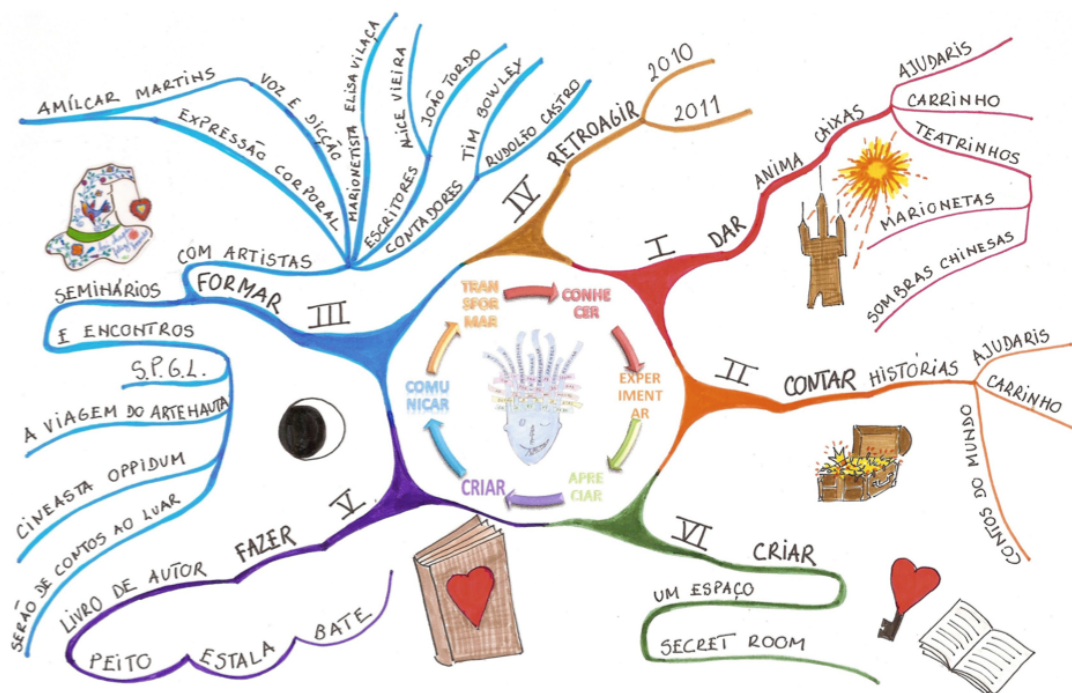 TRAN
SFOR
MAR
CONHE
CER
EXPER
IMENT
AR
APRE
CIAR
CRIAR
COMU
NICAR
I
DAR
ANIMA
CAIXAS
AJUDARIS
CARRINHO
TEATRINHOS
MARIONETAS
SOMBRAS CHINESAS
II
CONTAR HISTÓRIAS
AJUDARIS
CARRINHO
CONTOS DO MUNDO
III
FORMAR
COM ARTISTAS
AMÍLCAR MARTINS
VOZ E DICÇÃO
EXPRESSÃO CORPORAL
MARIONETISTA ELISA VILAÇA
ESCRITORES
ALICE VIEIRA
JOÃO TORDO
CONTADORES
TIM BOWLEY
RUDOLFO CASTRO
SEMINÁRIOS
E ENCONTROS
S.P.G.L.
A VIAGEM DO ARTEHAUTA
CINEASTA OPPIDUM
SERÃO DE CONTOS AO LUAR
IV
RETROAGIR
2010
2011
V
FAZER
LIVRO DE AUTOR
PEITO
ESTALA
BATE
VI
CRIAR
UM ESPAÇO
SECRET ROOM